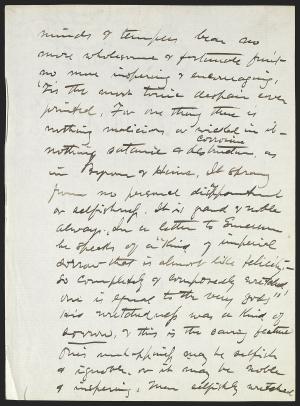 minds & temples bear no
more wholesome & fortunate fruit -
no more inspiring & encouraging.
'Tis the most tonic despair ever
printed. For one thing there is
nothing malicious, or wicked in it -
nothing satanic or destructive, as
corrosive
in Byron & Heine. It sprang
from no personal disappointment
or selfishness. It is grand & noble
always. In a letter to Emerson
he speaks of a "kind of imperial
sorrow that is almost like felicity -
so completely & composedly wretched,
one is equal to the very gods"
his wretchedness was a kind of
sorrow, & this is the saving feature
One's unhappiness may be selfish
& ignoble, or it may be noble
& inspiring. Men selfishly wretched